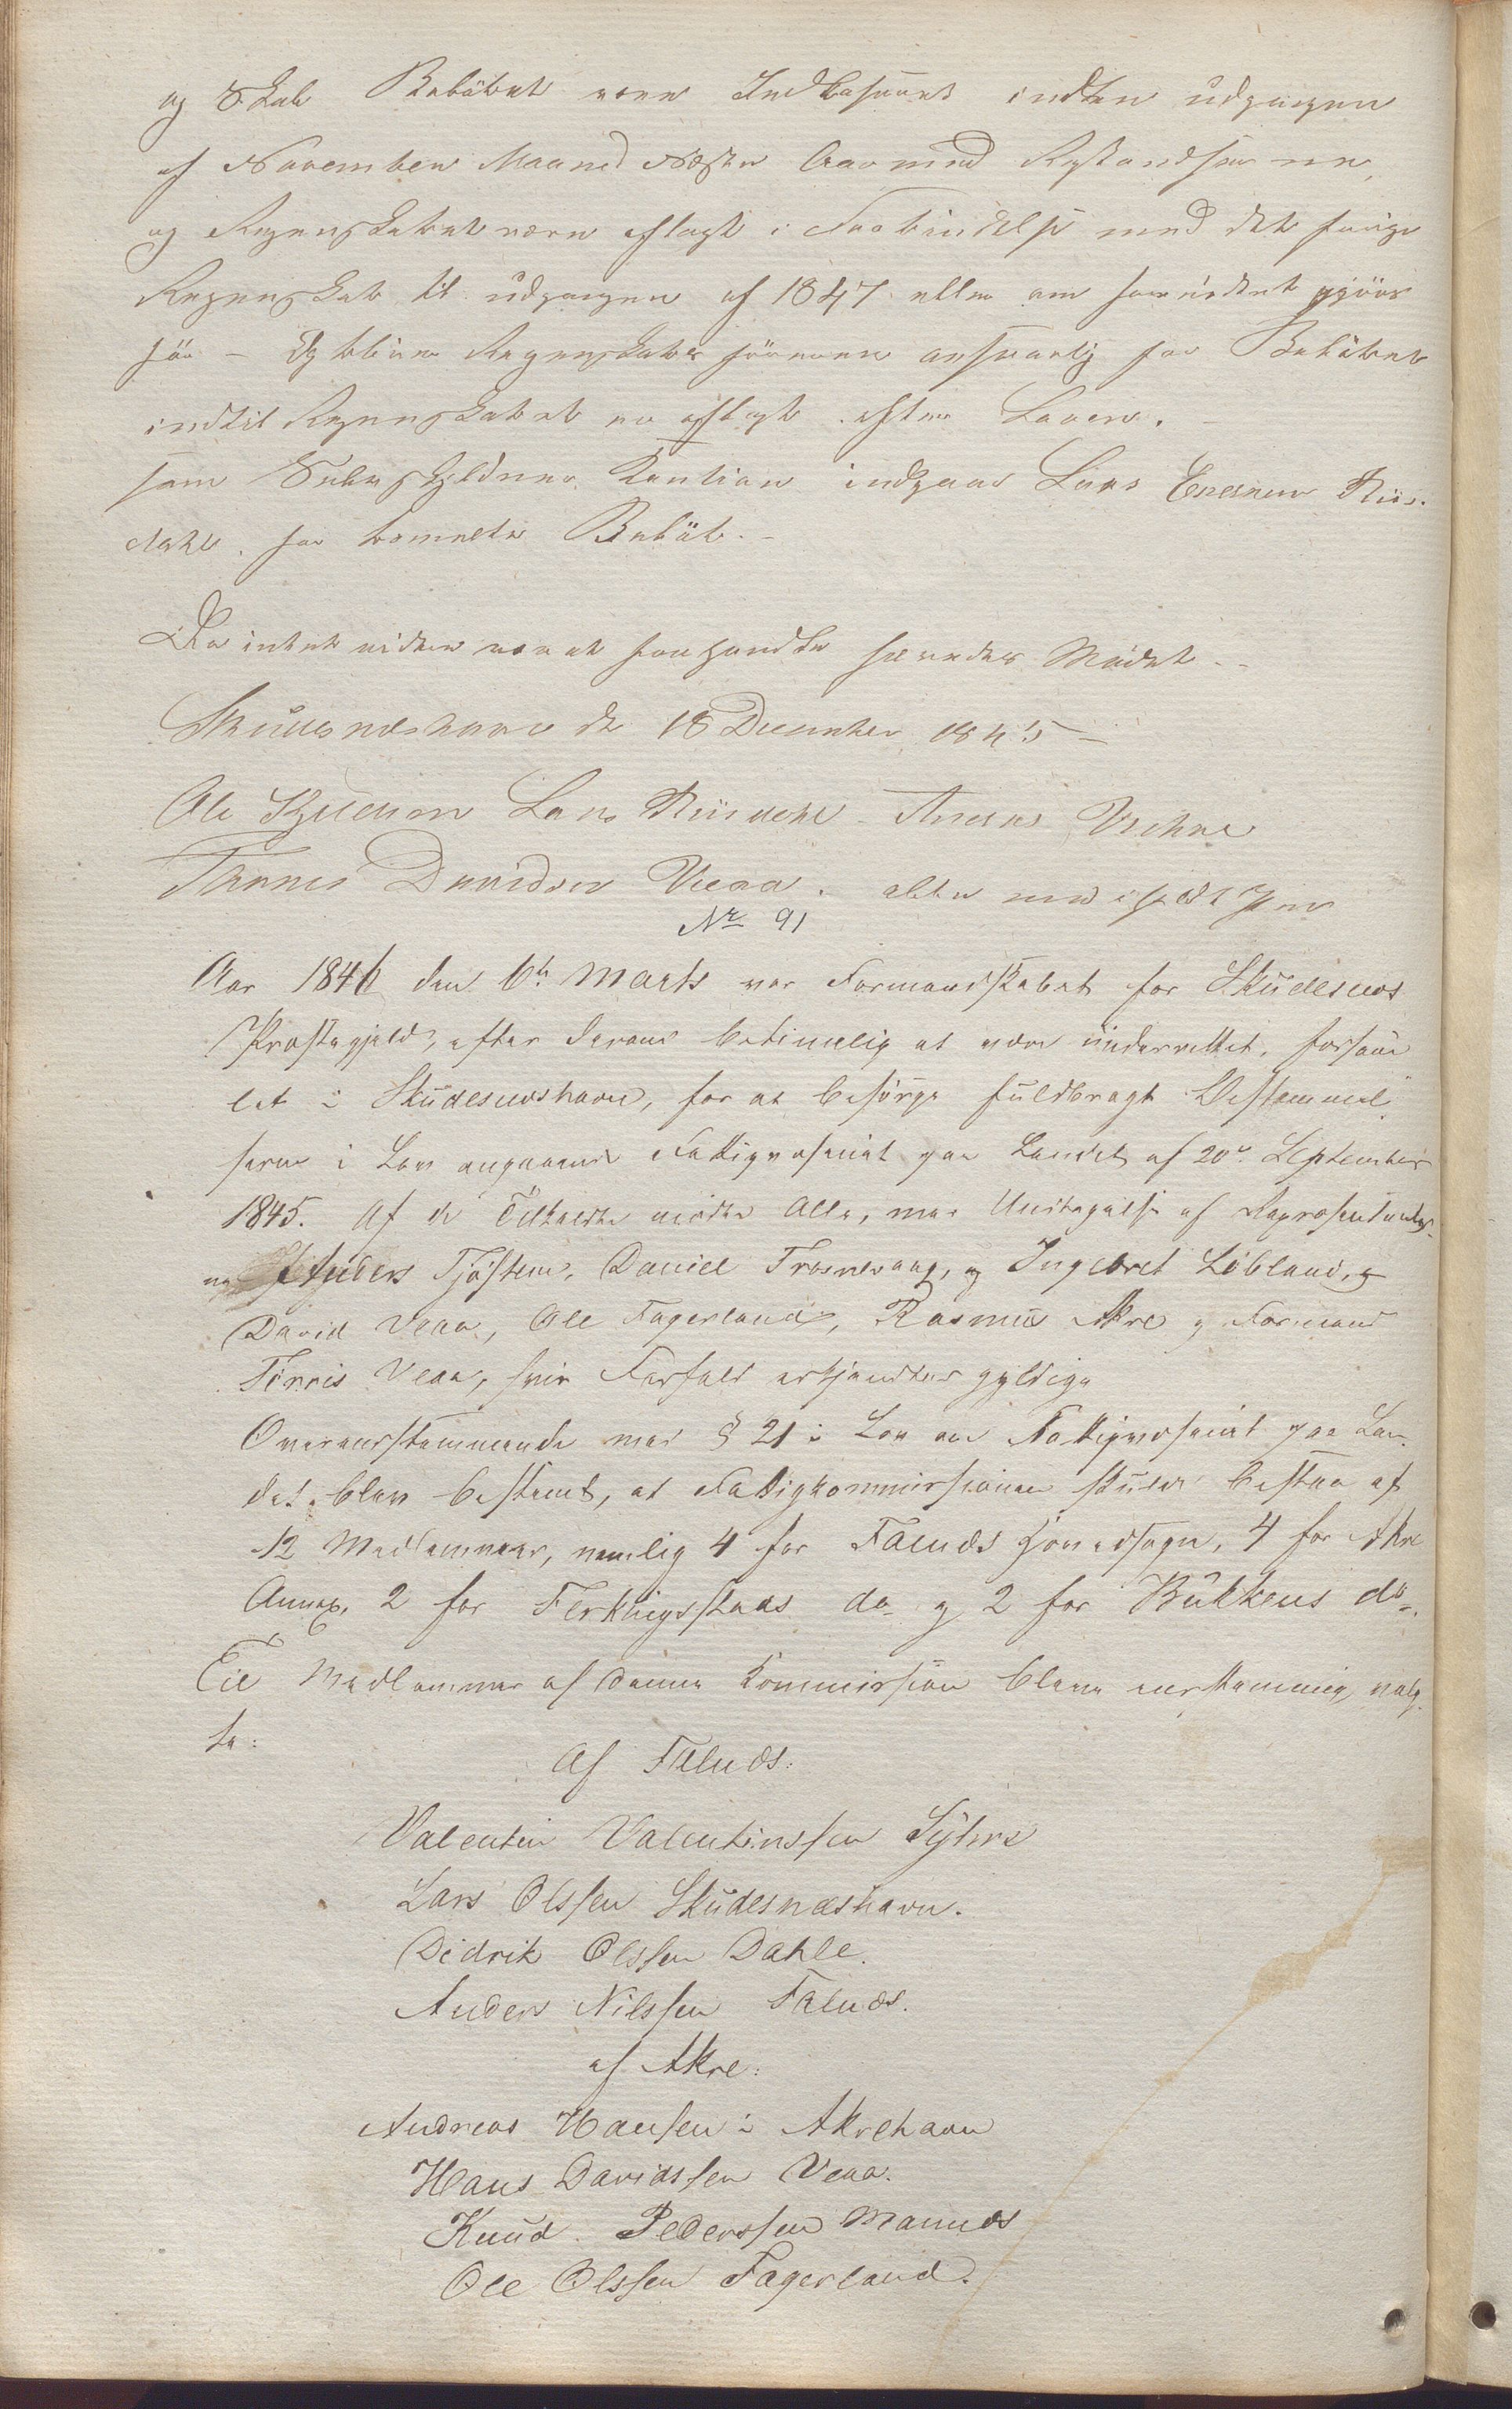 og Skal Belöbet være Indkasseret inden udgangen
af November Maaned næste Aar med Restanserne,
og Regenskabet være aflagt i Forbindelse med det forrige
Regenskab til udgangen af 1847 eller om fornödent gjöres
för – Og bliver Regenskabs föreren ansvarlig for Belöbet
indtil Regenskabet er aflagt efter Loven. –
som Selvskyldner Kaution indgaar Lars Enersen Riis-
dahl. for bemelte Belöb. –
Da intet videre var at forhandle hævedes Mödet. –
Skudesnæshavn d 18 December 1845 –
Ole Lars Riisdahl
Davidsen Veaa. med Pen
No 91
Aar 1846 den 6te Marts var Formandskabet for Skudesnæs
Præstegjeld, efter derom betimelig at være underrettet, forsam
let i Skudesnæshavn, for at besörge fuldbragt Bestemmel
serne i Lov angaaende Fattigvæsenet paa Landet af 20de September
1845. Af de Tilkaldte mödte Alle, med Undtagelse af Repræsentanter-
ne Anders Tjösten, Daniel Træsnesvaag, og Ingebret Löbland, &
David Veaa, Ole Fagerland, Rasmus Akre og Formand
Tönnis Veaa, hvis Forfald erkjendtes gyldige
Overensstemmende med § 21 i Lov om Fattigvæsenet paa Lan-
det blev bestemt, at Fattigkommissionen skulde bestaa af
12 Medlemmer, nemlig 4 for Falnæs Hovedsogn, 4 for Akre
Annex, 2 for Ferkingstads do og 2 for Bukkens do.
Til Medlemmer af denne Kommission bleve eenstemmig valg-
te:
Af Falnæs:
Valentin Valentinssen Syhre
Lars Olssen Skudesnæshavn.
Didrik Olssen Dahle.
Anders Nilssen Falnæs.
af Akre:
Andreas Hansen i Akrehavn
Hans Davidssen Veaa.
Knud Pederssen Mannæs
Ole Olssen Fagerland.